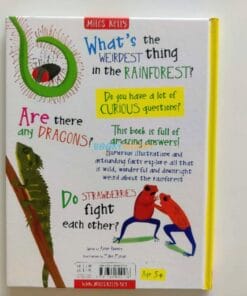 MILES KELLY
What's the
WEIRDEST thing
in the RAINFOREST?
Do you have a lot of
CURIOUS questions?
Are there
any DRAGONS?
This book is full of
amazing answers!
Humorous illustrations and
astounding facts explore all that
is wild, wonderful and downright
weird about the rainforest
Do STRAWBERRIES
fight
each other?
Age 5+